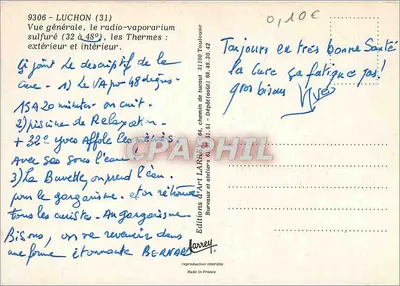 9306 - LUCHON (31)
Vue générale, le radio-vaporarium
sulfuré (32 à 48°), les Thermes :
extérieur et intérieur.
Ci joint le descriptif de la
Cure - 1) Le VAP par 48 degrés.
15 à 20 minutes on cuit.
2) piscine de Relaxation
+ 32° Yves Affole les
Avec ses sous l'eau
3) La Buvette, on prend l'eau
pour le gargarisme. et on retrouve
tous les curistes. Au gargarisme
Bisous, on va revenir dans
une forme étonnante BERNARD
Editions d'Art LARREY, 64, Chemin de 31100 Toulouse
Bureaux et ateliers 61.51.51 - Dépôt(soir) 60.48.30.42
Larrey
reproduction interdite
Made in France
0,10€
Toujours en très bonne Santé
la Cure ça fatigue pas !
gros bisous Yves
CPAPHIL